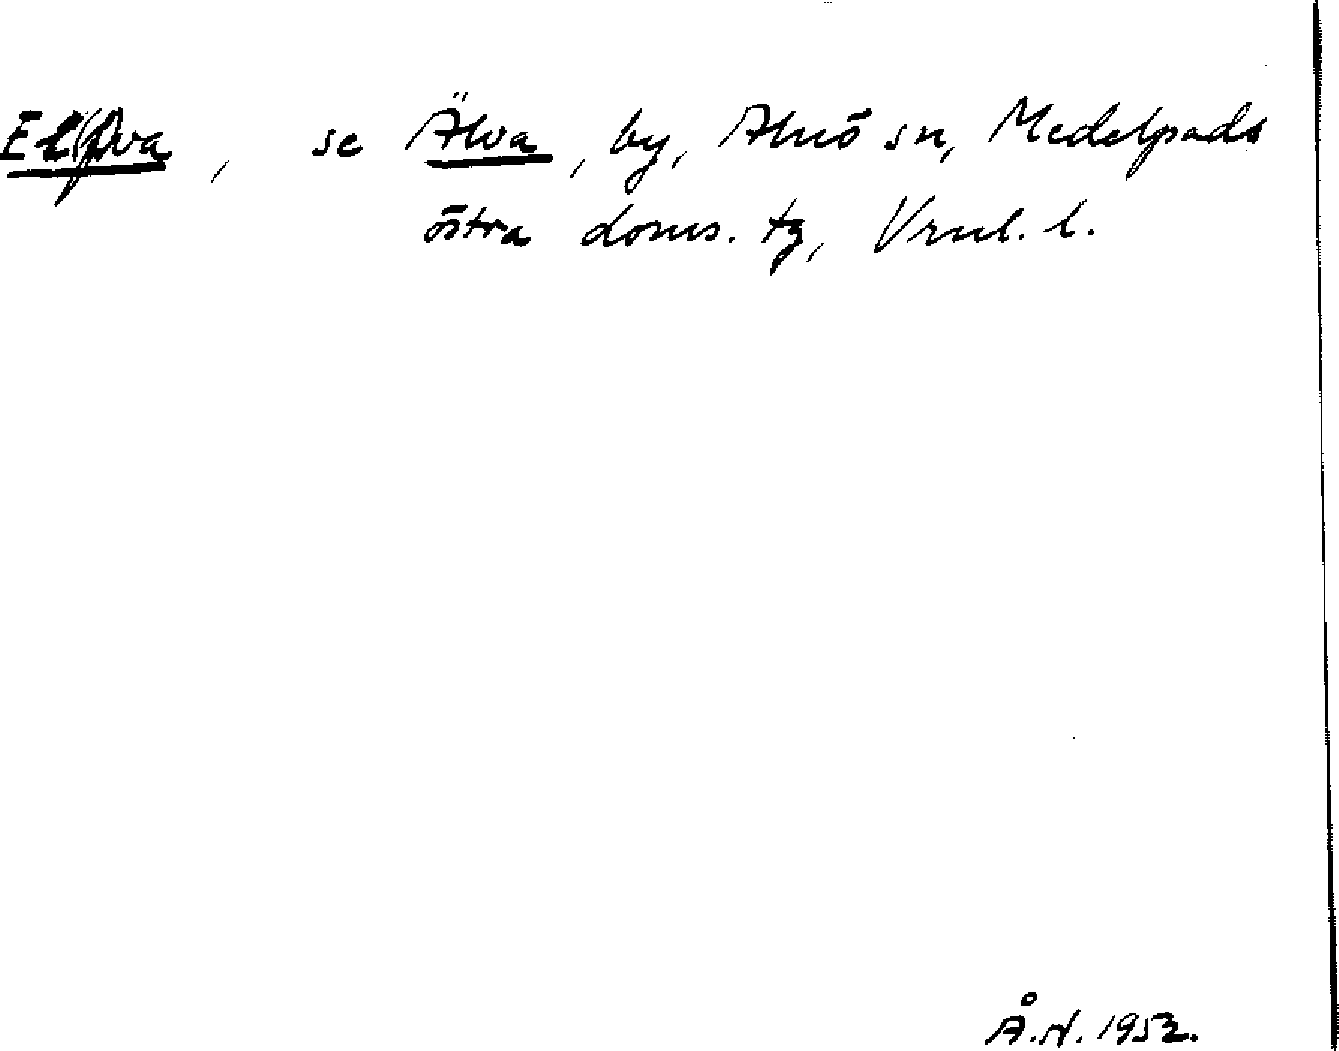 El(f)va, se Älva, by, Alnö sn, Medelpads
östra doms. tg, Vrnl. l.
Å.N. 1952.